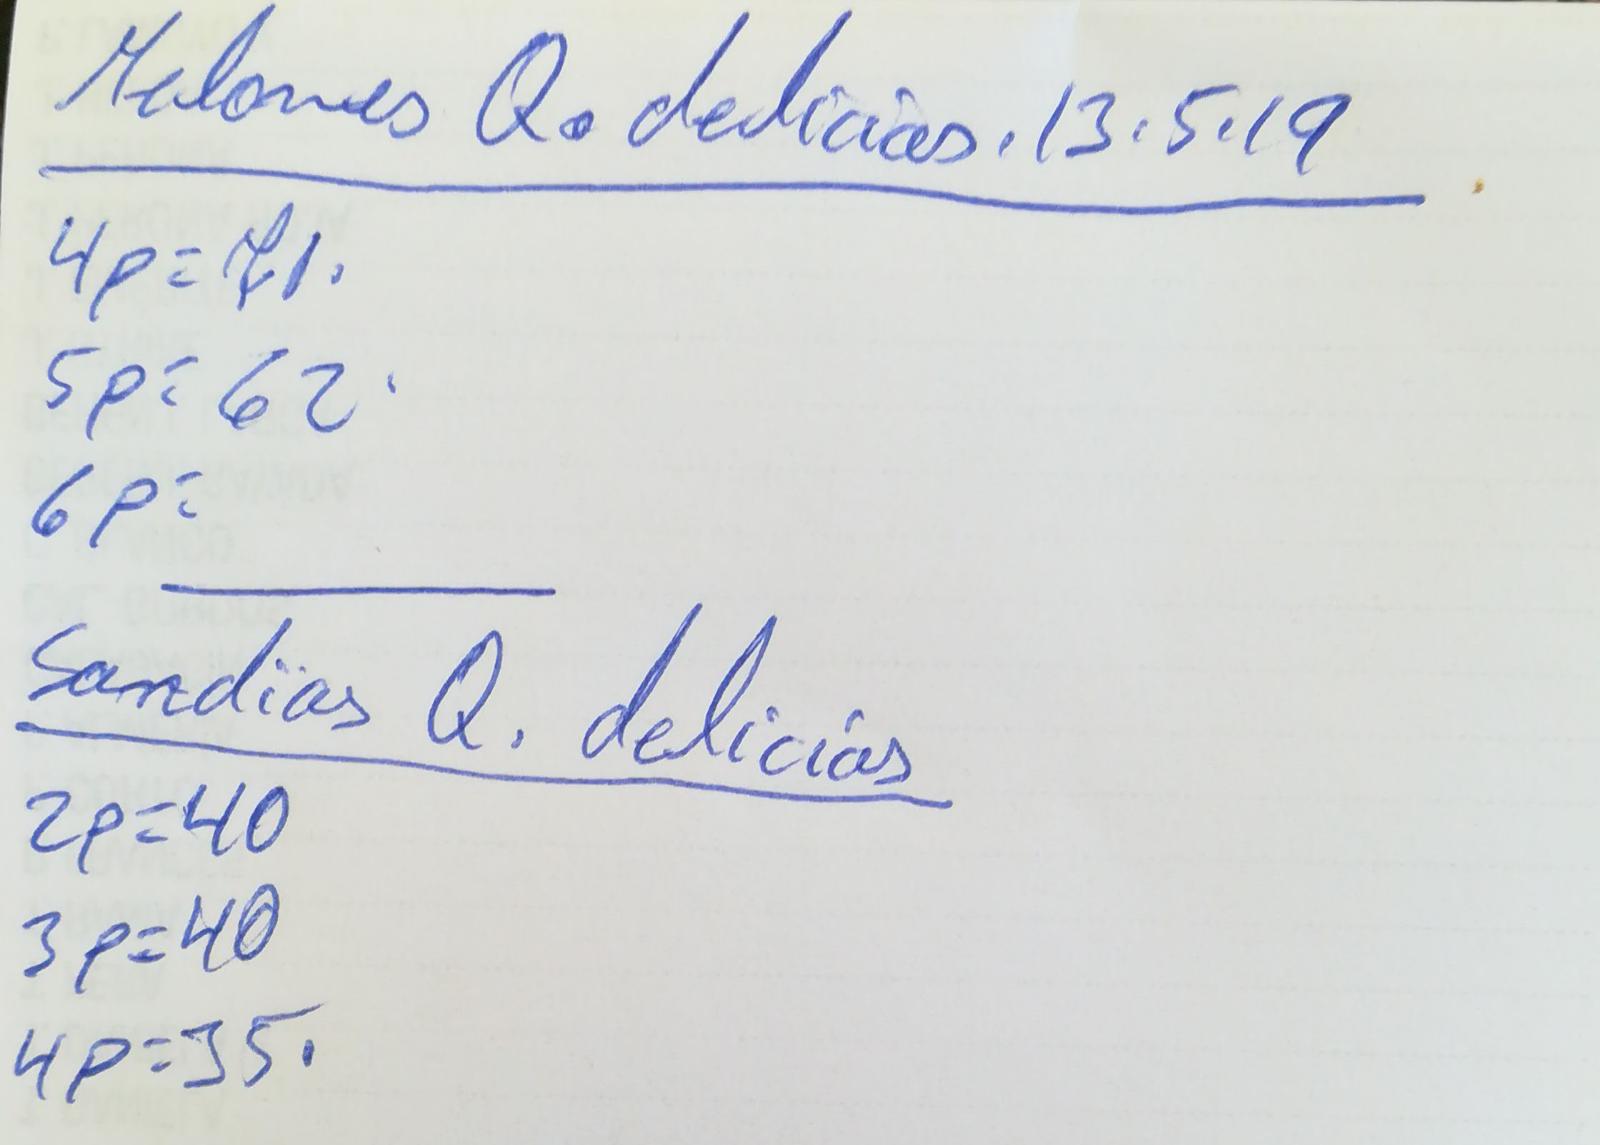 Melones Q. delicias. 13.5.19
4p=71.
5p=62.
6p=
Sandias Q. delicias
2p=40
3p=40
4p=35.